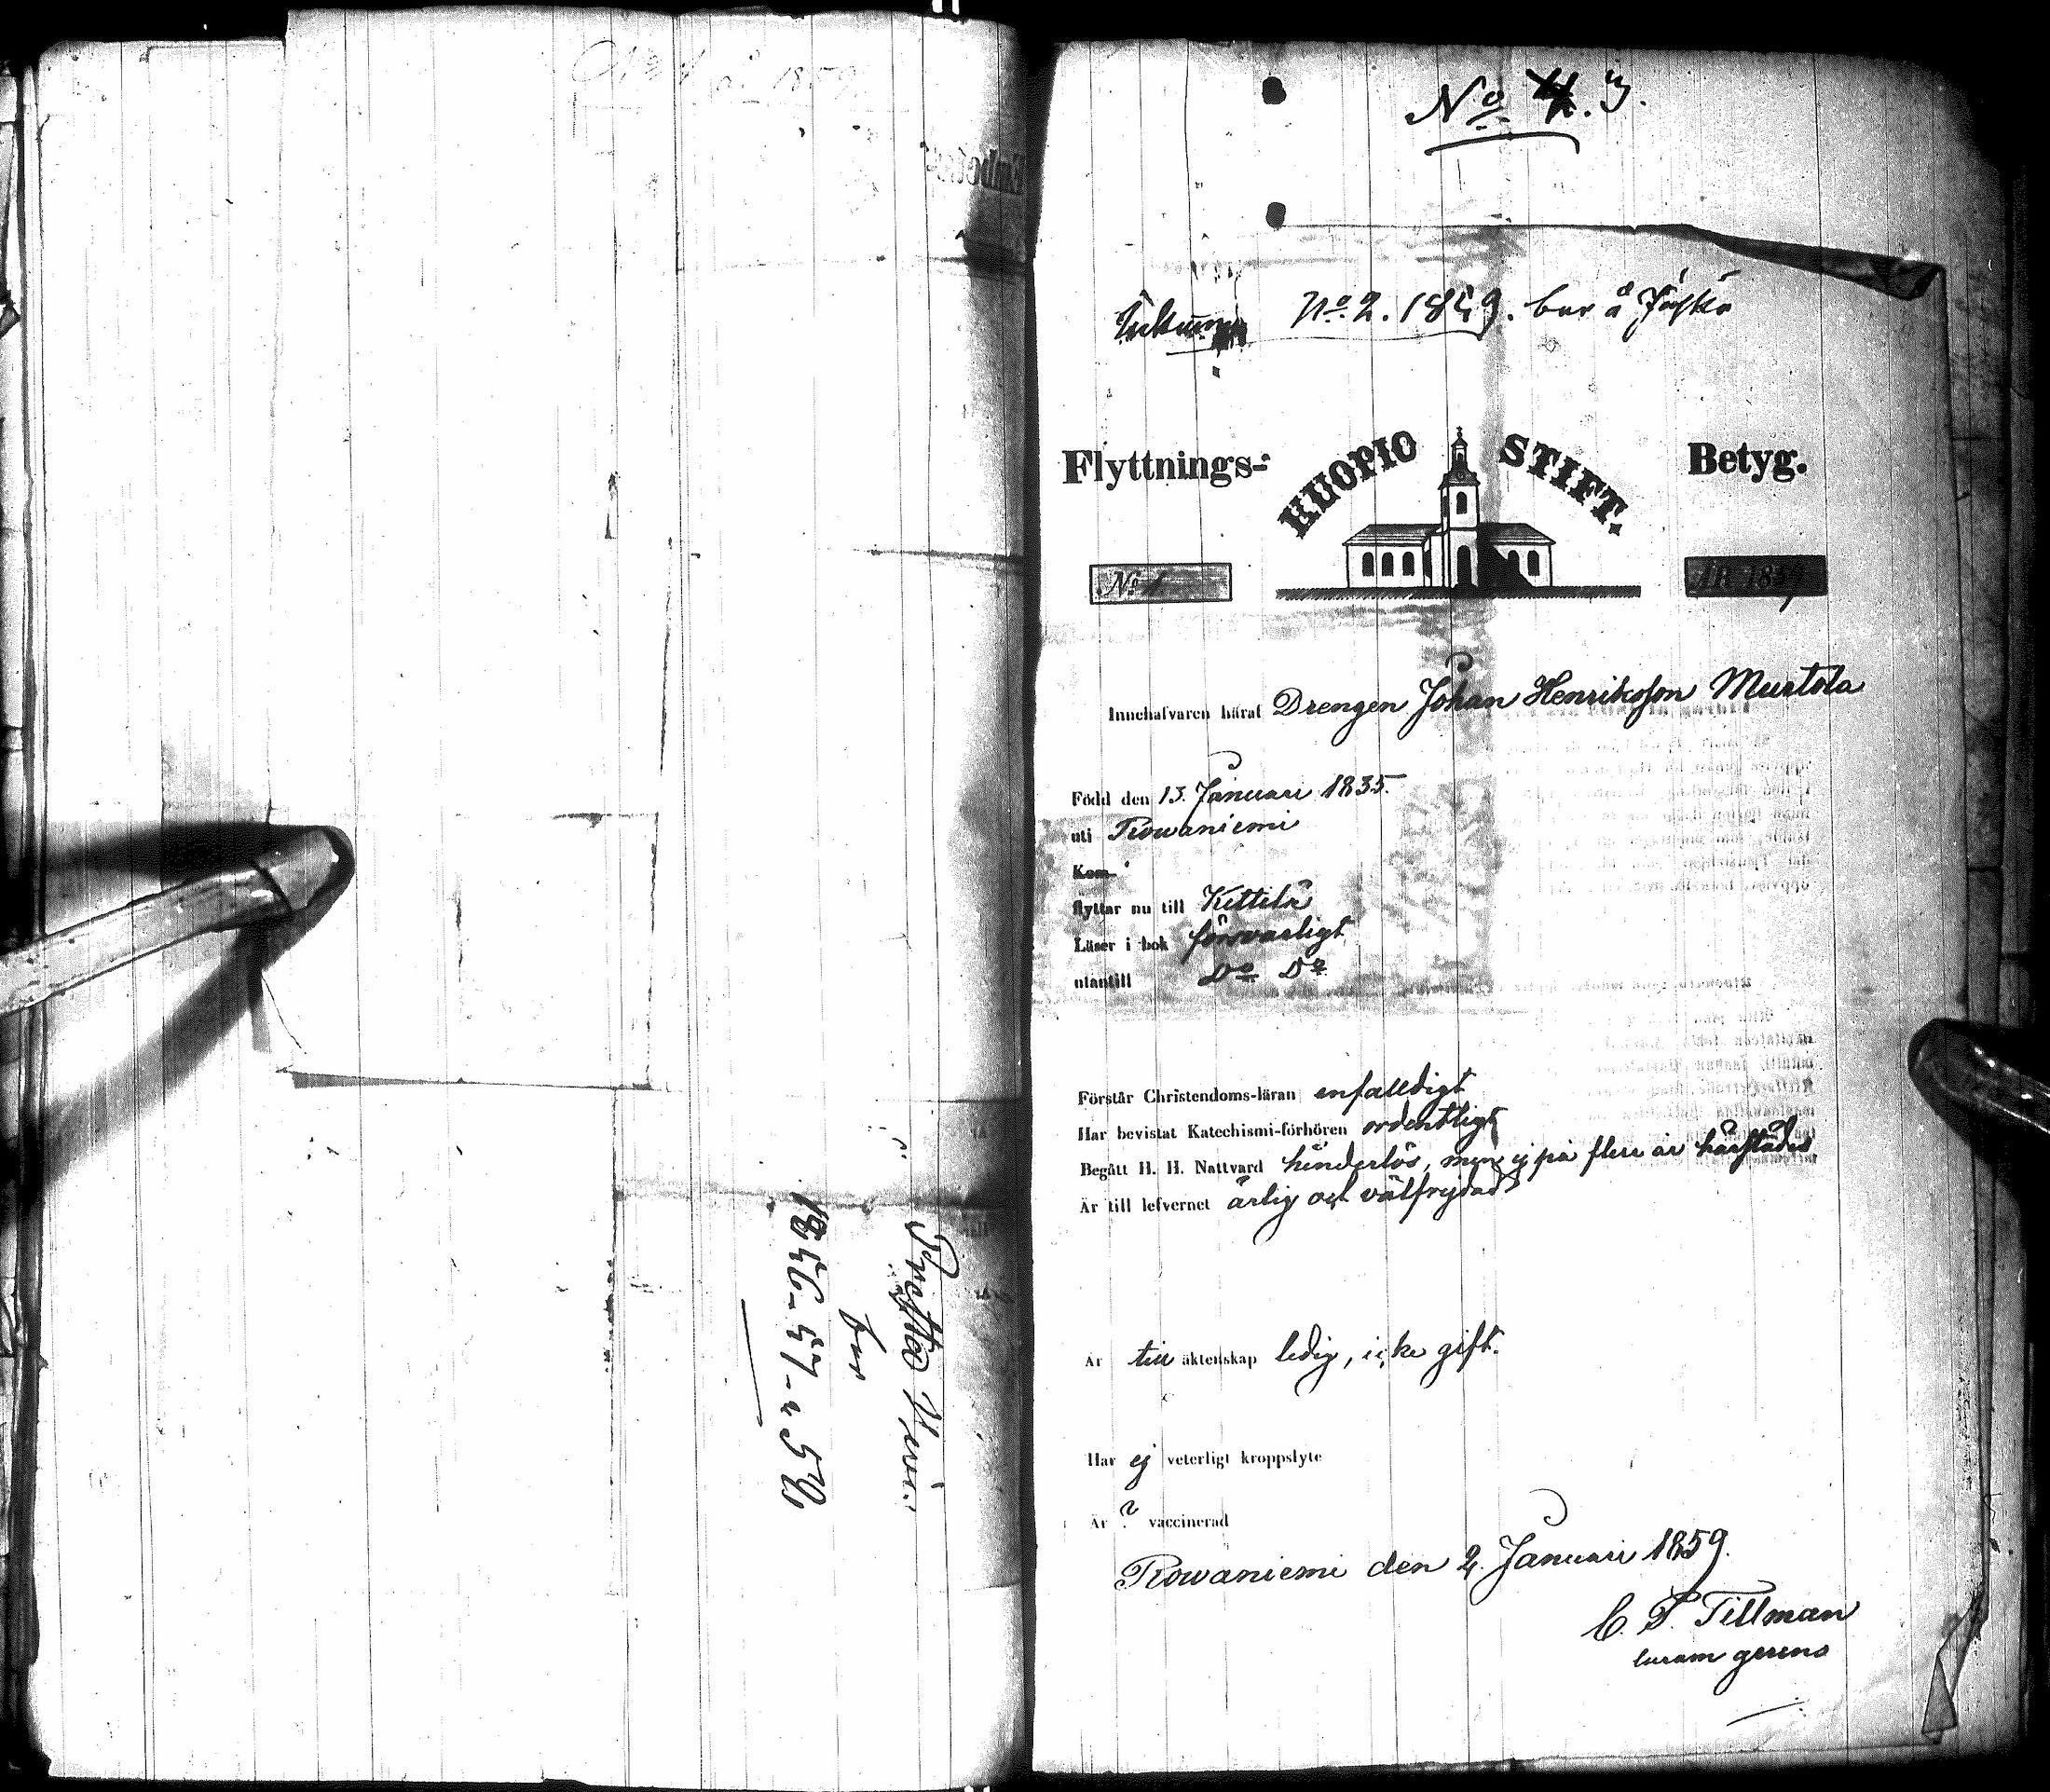 No 1 a° 1859
1856-57-58
för
No 3.
No. 2. 1859.
Flyttnings- KUOPIO STIFT. Betyg.
No 1
ÅR 1859
Innehafvaren häraf Drengen Johan Henriksson Murtola
Född den 13. Januari 1835.
uti Rowaniemi
Kom-
flyttar nu till Kittilä
Läser i bok försvarligt
utantill Do Do
Förstår Christendoms-läran enfalldigt
Har bevistat Katechismi-förhören ordentligt
Begått H. H. Nattvard hinderlös, men ej på flere år härstädes
Är till lefvernet ärlig och välfrejdad
Är till äktenskap ledig, icke gift.
Har ej veterligt kroppslyte
Är ? vaccinerad
Rowaniemi den 2. Januari 1859.
C. S. Tillman
curam gerens